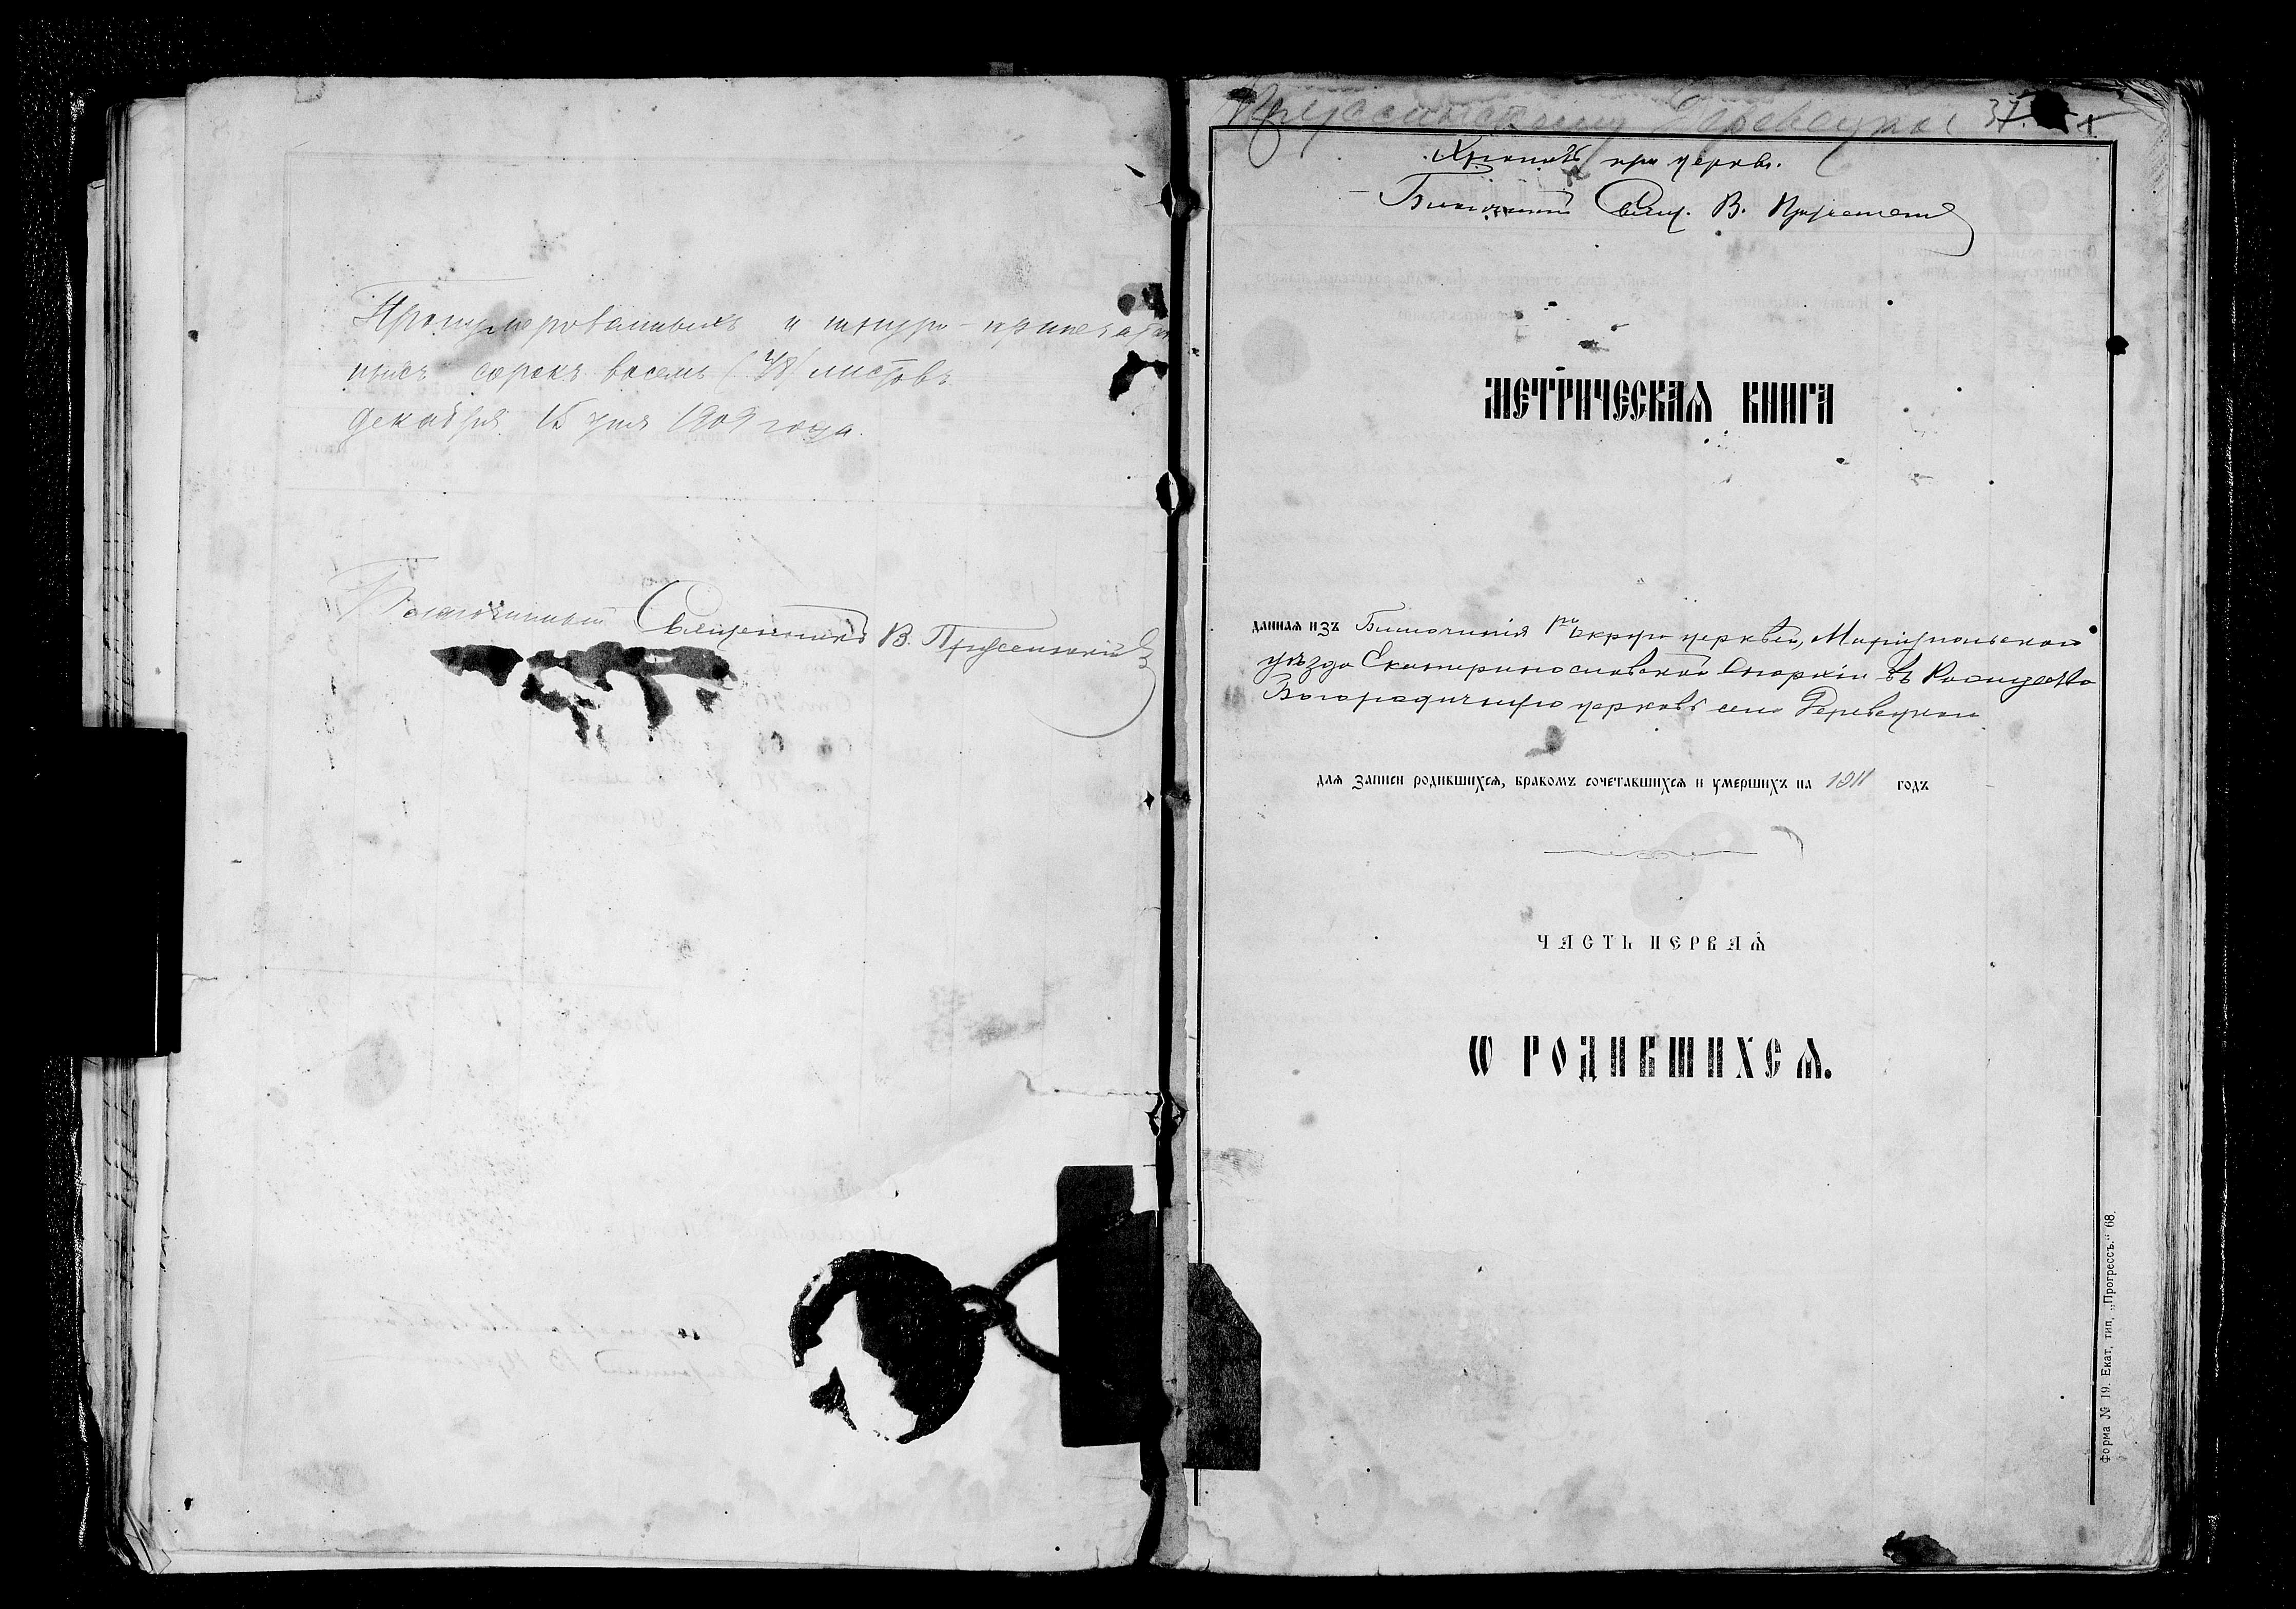 Пронумерованныхъ и шнуро-припечатан
ныхъ сорокъ восемь (48) листовъ
декабря 15 дня 1909 года.
Благочинный Священникъ В. Пруссинскій
37.
Хранить при церкви.
Благочинный Свящ. В.
МЕТРИЧЕСКАЯ КНИГА
данная изъ Благочинія 1го округа церквей, Маріупольскаго
уѣзда Екатеринославской Епархіи въ Рождество
Богородичную церковь села
для записи родившихся, бракомъ сочетавшихся и умершихъ на 1911 годъ
ЧАСТЬ ПЕРВАЯ
Ѡ РОДИВШИХСЯ.
Форма № 19. Екат, тип, „Прогрессъ.“ 68.